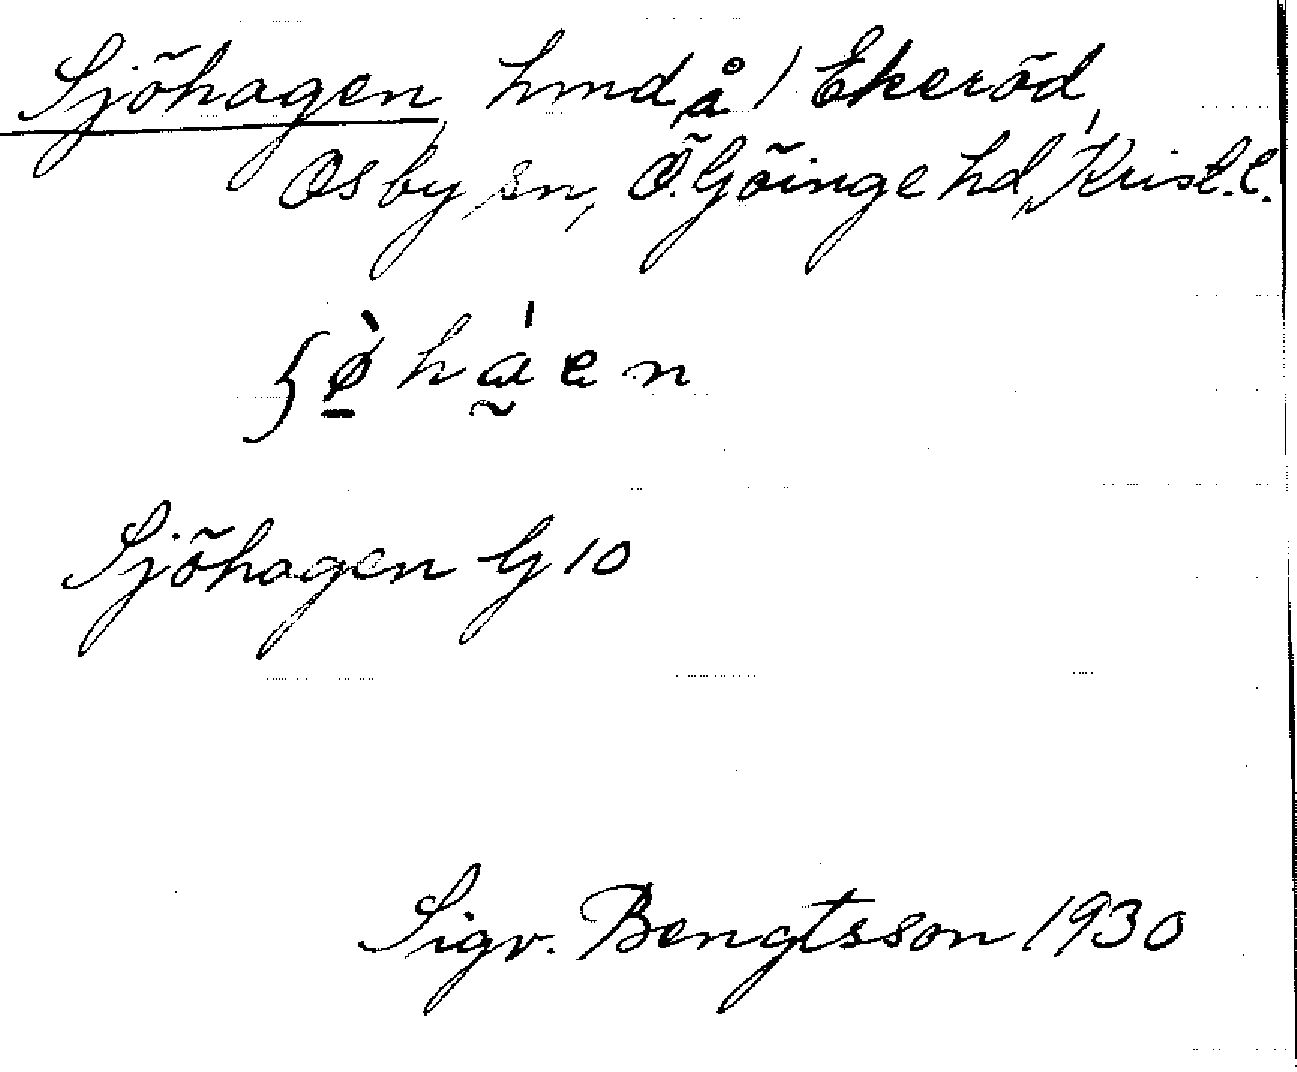 Sjöhagen, hmd å 1 Ekeröd,
Osby sn, Ö. Göinge hd, Krist. l.
ʃø̠̀háen
Sjöhagen G 10
Sigv. Bengtsson 1930